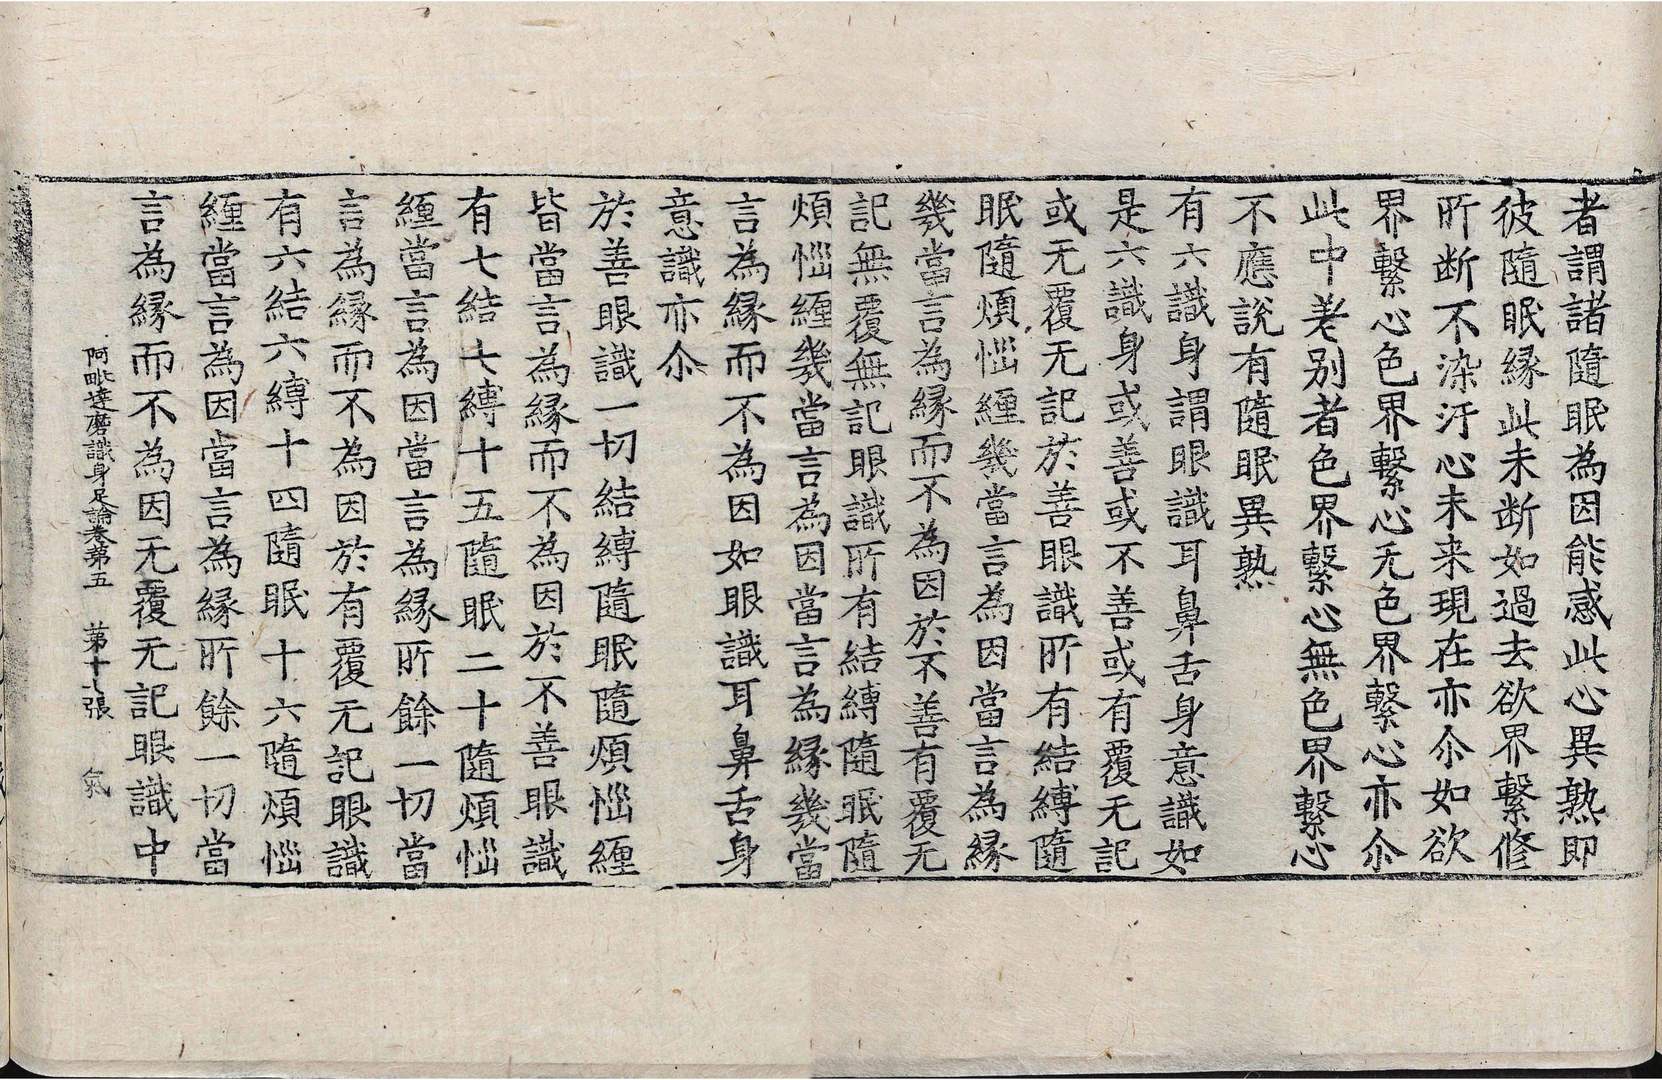 者謂諸隨眠為因能感此心異熟即
彼隨眠緣此未断如過去欲界繫修
所断不染汙心未来現在亦尒如欲
界繫心色界繫心无色界繫心亦尒
此中差别者色界繫心無色界繫心
不應說有隨眠異熟
有六識身謂眼識耳鼻舌身意識如
是六識身或善或不善或有覆无記
或无覆无記於善眼識所有結縛隨
眠隨煩惱纏幾當言為因當言為緣
幾當言為緣而不為因於不善有覆无
記無覆無記眼識所有結縛隨眠隨
煩惱纏幾當言為因當言為緣幾當
言為緣而不為因如眼識耳鼻舌身
意識亦尒
於善眼識一切結縛隨眠隨煩惱纏
皆當言為緣而不為因於不善眼識
有七結七縛十五隨眠二十隨煩惱
纏當言為因當言為緣所餘一切當
言為緣而不為因於有覆无記眼識
有六結六縛十四隨眠十六隨煩惱
纏當言為因當言為緣所餘一切當
言為緣而不為因无覆无記眼識中
阿毗達磨識身足論卷第五 第十八張 氣